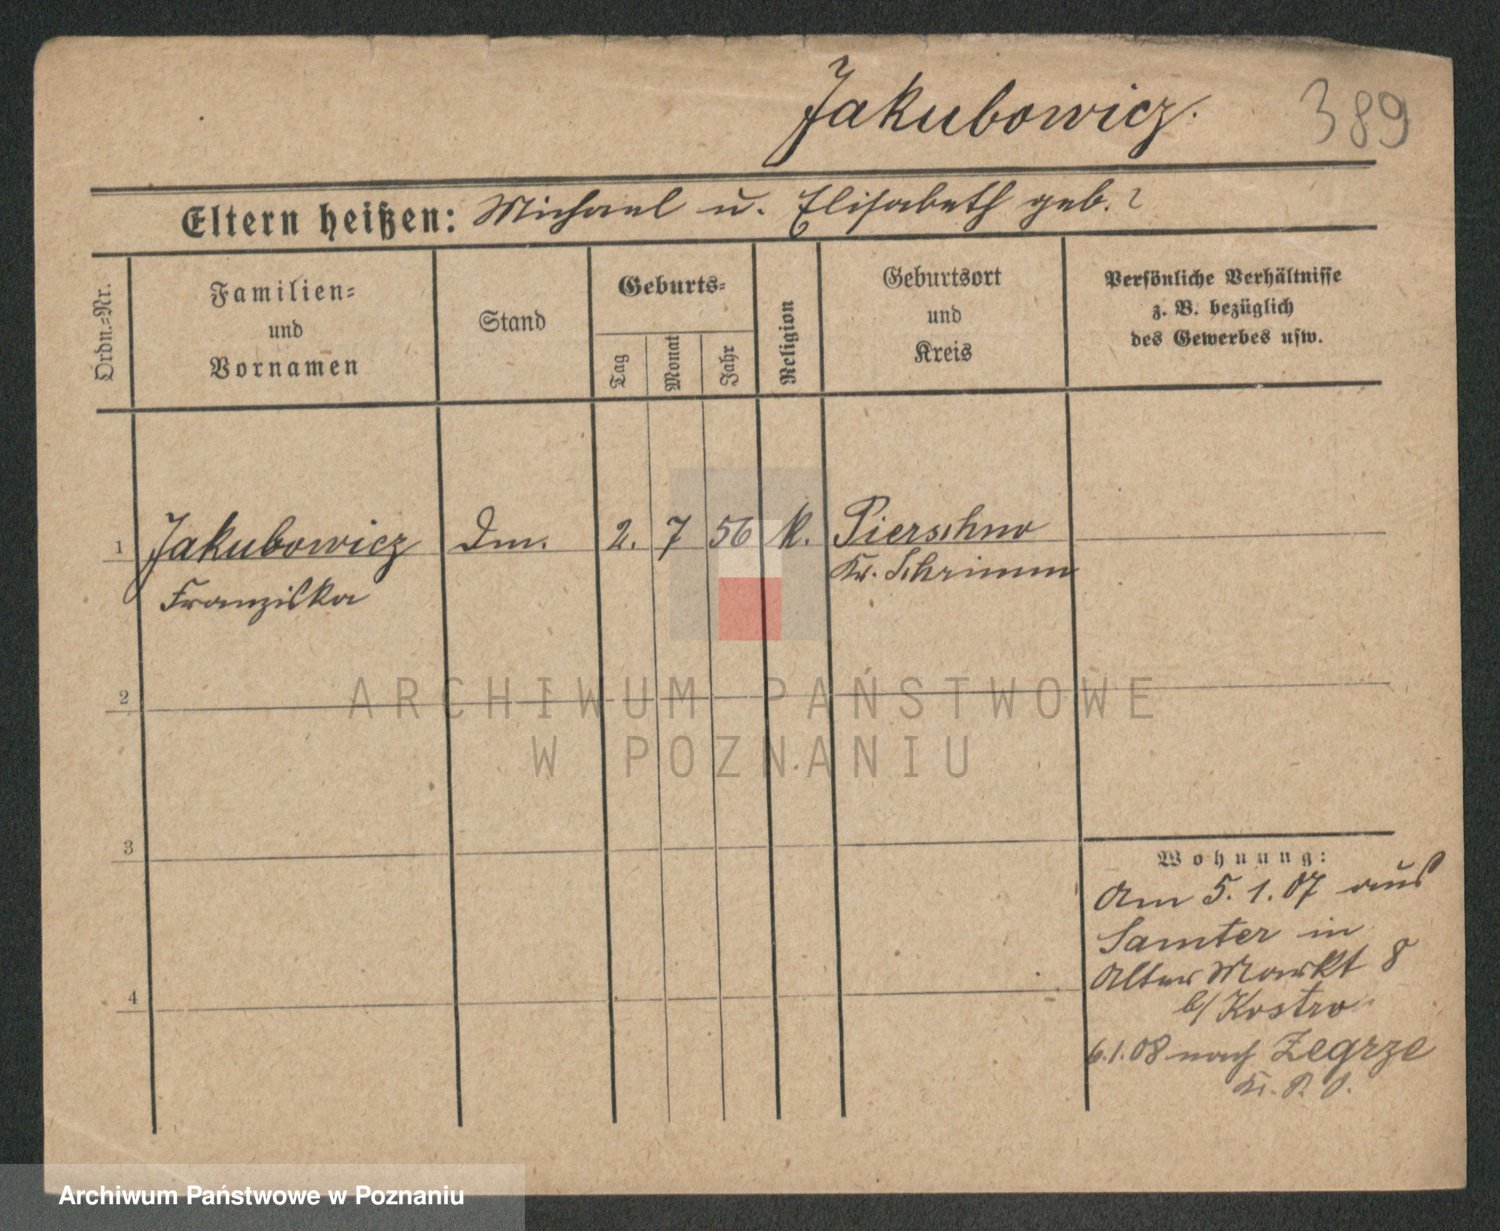 Jakubowicz.
389
Eltern heißen: Michael u. Elisabeth geb. ?
Ordn.=Nr.
Familien=
und
Vornamen
Stand
Geburts=
Tag
Monat
Jahr
Religion
Geburtsort
und
Kreis
Persönliche Verhältnisse
z. B. bezüglich
des Gewerbes usw.
1 Jakubowicz Dm. 2. 7 56 k. Pierschno
Franziska Kr. Schrimm
2
3
4
Wohnung:
Am 5.1.07 aus
Samter in
Alter Markt 8
b/ Kostro
6.1.08 nach Zegrze
Kr. P. O.
ARCHIWUM PAŃSTWOWE
W POZNANIU
Archiwum Państwowe w Poznaniu